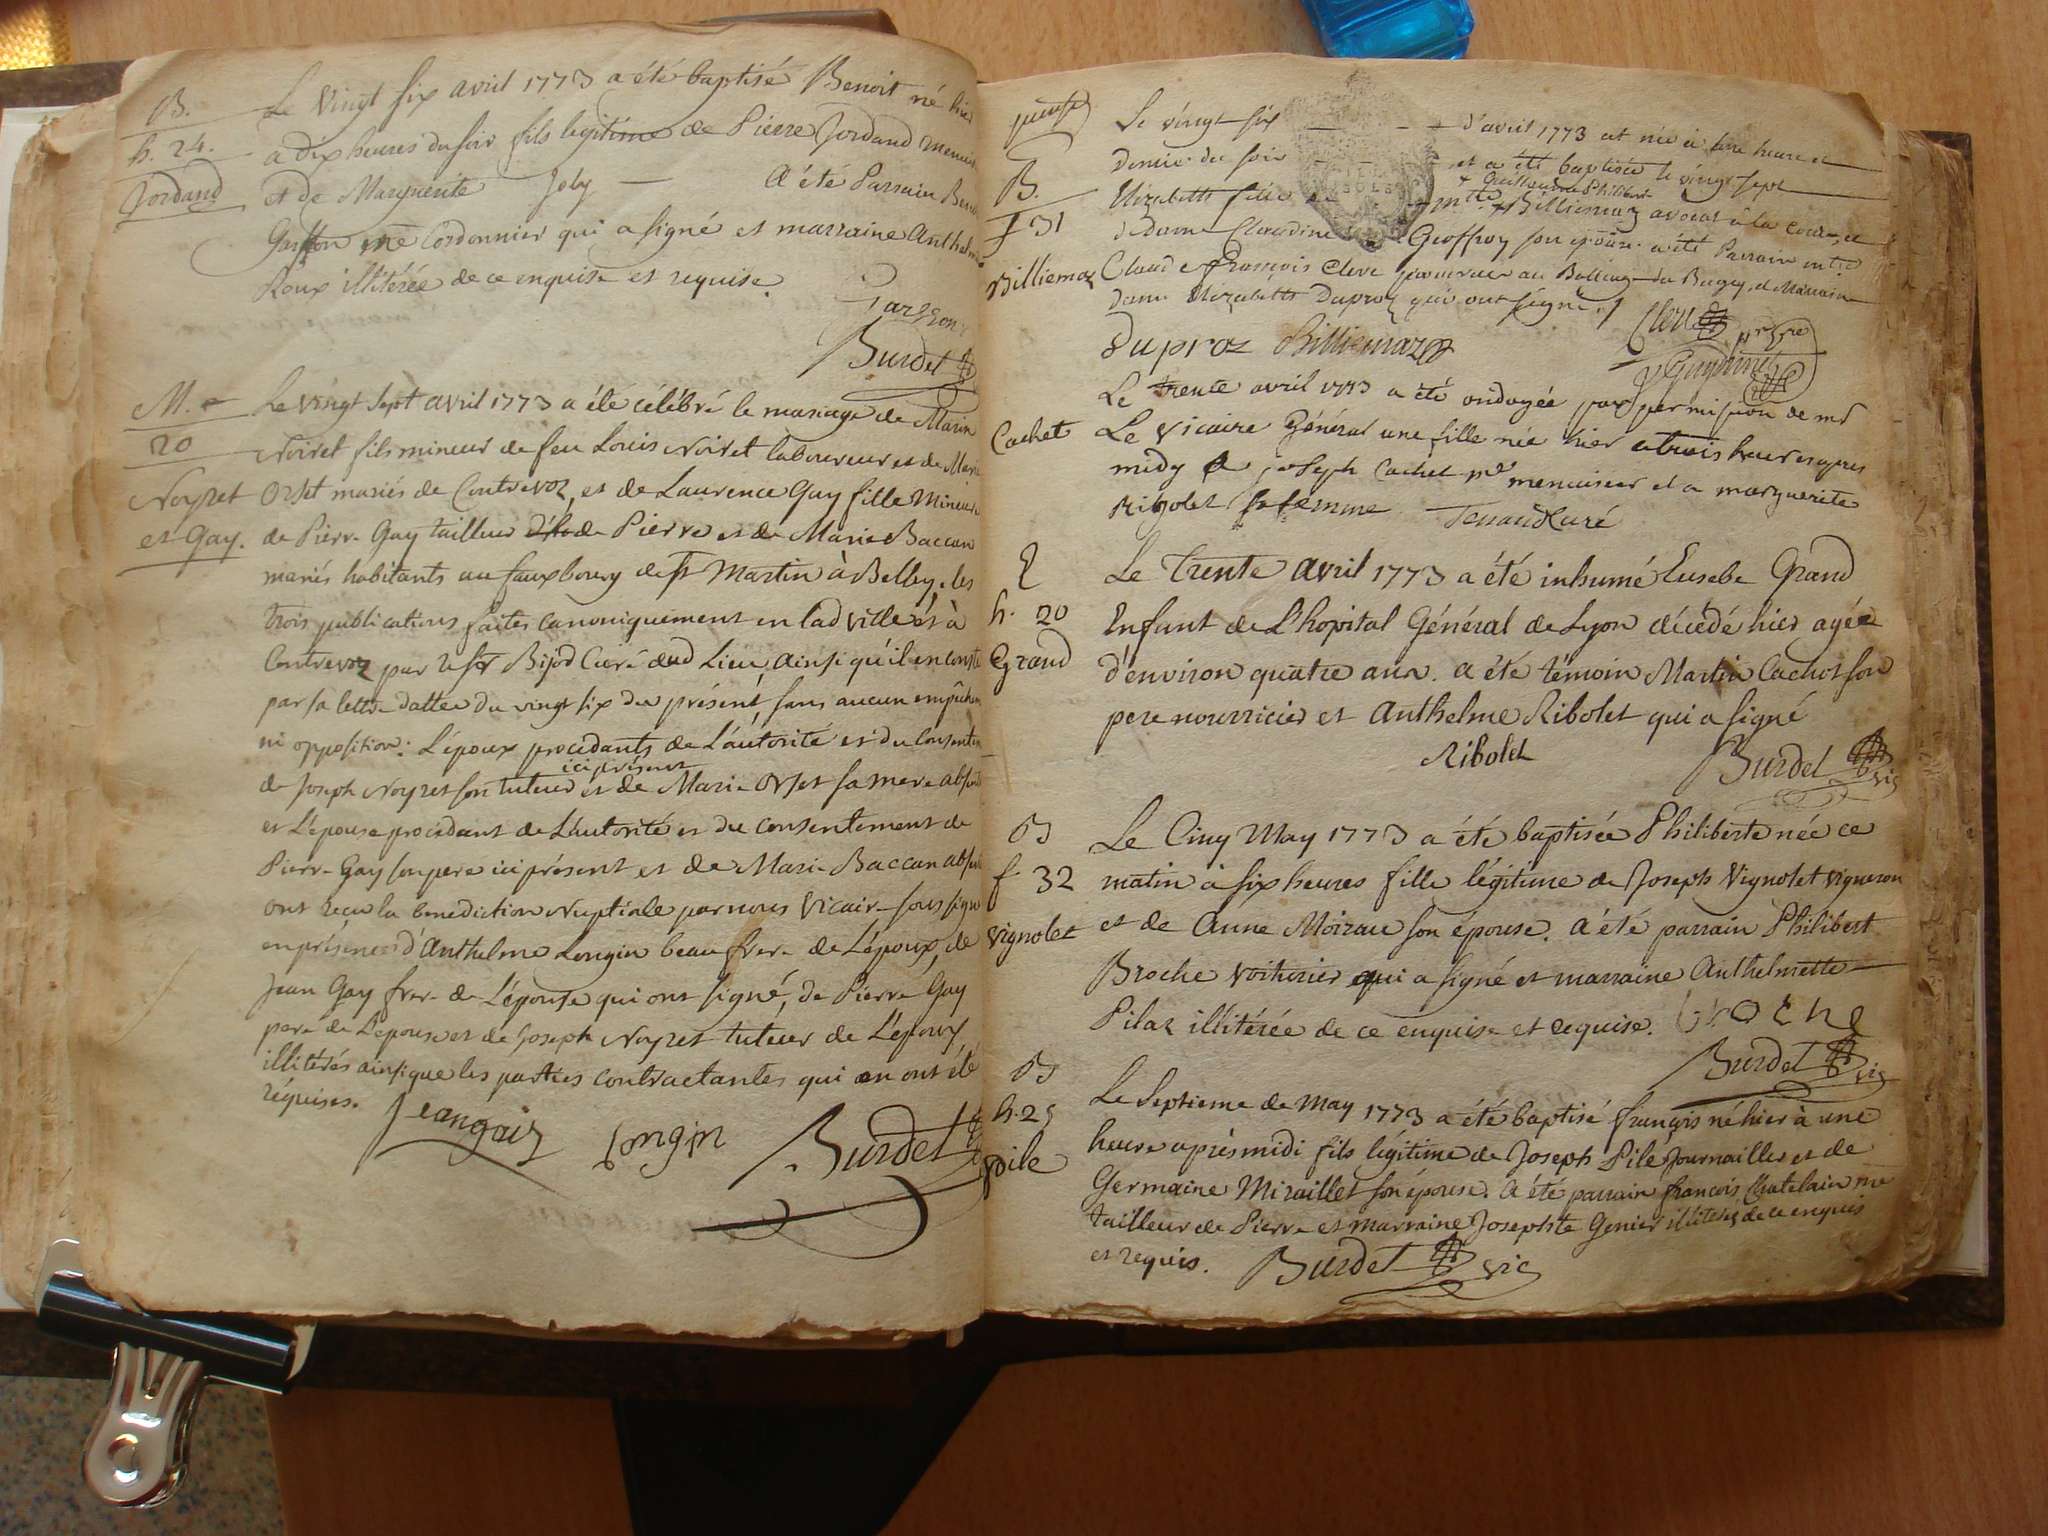 B.
h. 24.
Jordand
Le Vingt six avril 1773 a été baptisé Benoit né hier
a dix heures du soir fils legitime de Pierre Jordand menui
et de Marguerite Joly — A été Parrain Benoi
cordonnier qui a signé et marraine Anthelme
Roux illitérée de ce enquise et requise.
Burdet
M.
20
Noyret
et Gay.
Le vingt sept avril 1773 a été célébré le mariage de Marin
Noiret fils mineur de feu Louis Noiret laboureur et de Marie
Orset mariés de Contrevoz, et de Laurence Gay fille Mineure
de Pierre Gay tailleur de Pierre et de Marie Baccon
mariés habitants au fauxbourg de st Martin à Belley, les
trois publications faites canoniquement en lad ville et à
Contrevoz par Bijod Curé dud Lieu, ainsi qu'il en conste
par sa lettre dattée du vingt six du présent, sans aucun empêchem
ni opposition: L'époux procédants de L'autorité et du consentem
ici présent
de Joseph Noyret son tuteur et de Marie Orset sa mere absente
et L'épouse procédant de L'autorité et du consentement de
Pierre Gay son pere ici présent et de Marie Baccon absen
ont reçu la benediction Nuptiale par nous Vicaire soussigné
en présence d'Anthelme Longin beau frere de L'époux, de
Jean Gay frere de L'épouse qui ont signé, de Pierre Gay
pere de L'épouse et de Joseph Noyret tuteur de L'époux
illitérés ainsi que les parties contractantes qui en ont été
réquises.
Jean gaiz Longin Burdet
B.
f 31
Billiemaz
Le vingt six — d'avril 1773 est née à une heure et
demie du soir — et a été baptisée le vingt sept
Elizabeth fille de mtre Billiemaz avocat à la cour, et
de dame Claudine Geoffroy son épouse. a été Parrain mtre
Claude françois Clerc procureur au Balliage du Bugey et Maraine
dame Elizabeth Duproz qui ont signé
duproz Billiemaz Clerc
Cachet
Le trente avril 1773 a été ondoyée par permission de mr
Le Vicaire Général une fille née hier a trois heures apres
midy a joseph Cachet me menuisier et a marguerite
Ribolet sa femme Tenand Curé
E
h. 20
Grand
Le Trente Avril 1773 a été inhumé Eusebe Grand
Enfant de L'hopital Général de Lyon décédé hier agée
d'environ quatre ans. a été témoin Martin Cachot son
pere nourricier et Anthelme Ribolet qui a signé
Ribolet Burdet vic
B
f. 32
Vignolet
Le Cinq May 1773 a été baptisée Philiberte née ce
matin à six heures fille légitime de Joseph Vignolet vigneron
et de Anne Moizau son épouse. a été parrain Philibert
Broche Voiturier qui a signé et marraine Anthelmette
Pilaz illitérée de ce enquise et requise. broche
Burdet vic
B
h. 25
Pile
Le Septieme de May 1773 a été baptisé françois né hier à une
heure après midi fils légitime de Joseph Pile Journaillier et de
Germaine Miraillet son épouse. A été parrain françois Chatelain me
tailleur de Pierre et marraine Josephte Genier illiterés de ce enquis
et requis. Burdet vic